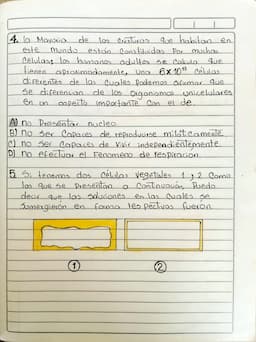 4. la Mayoria de los criaturas que habitan en
este mundo están Constituidas Por muchas
Celulas; los humanos adultos se Calcula que
tienen aproximadamente, una 6x10¹³ Células
diferentes de las cuales Podemos afirmar que
se diferencian de los Organismos unicelulares
en un aspecto importante Con el de
A) no Presentar nucleo
B) No ser Capaces de reproducirse mitóticamente
C) no ser Capaces de Vivir independientemente
D) no efectuar el Fenomeno de respiracion
5. Si tenemos dos Células vegetales 1 y 2 Como
las que se Presentan a Continuación, Puedo
decir que las soluciones en las Cuales se
Sumergieron en forma respectivas fueron
1 2